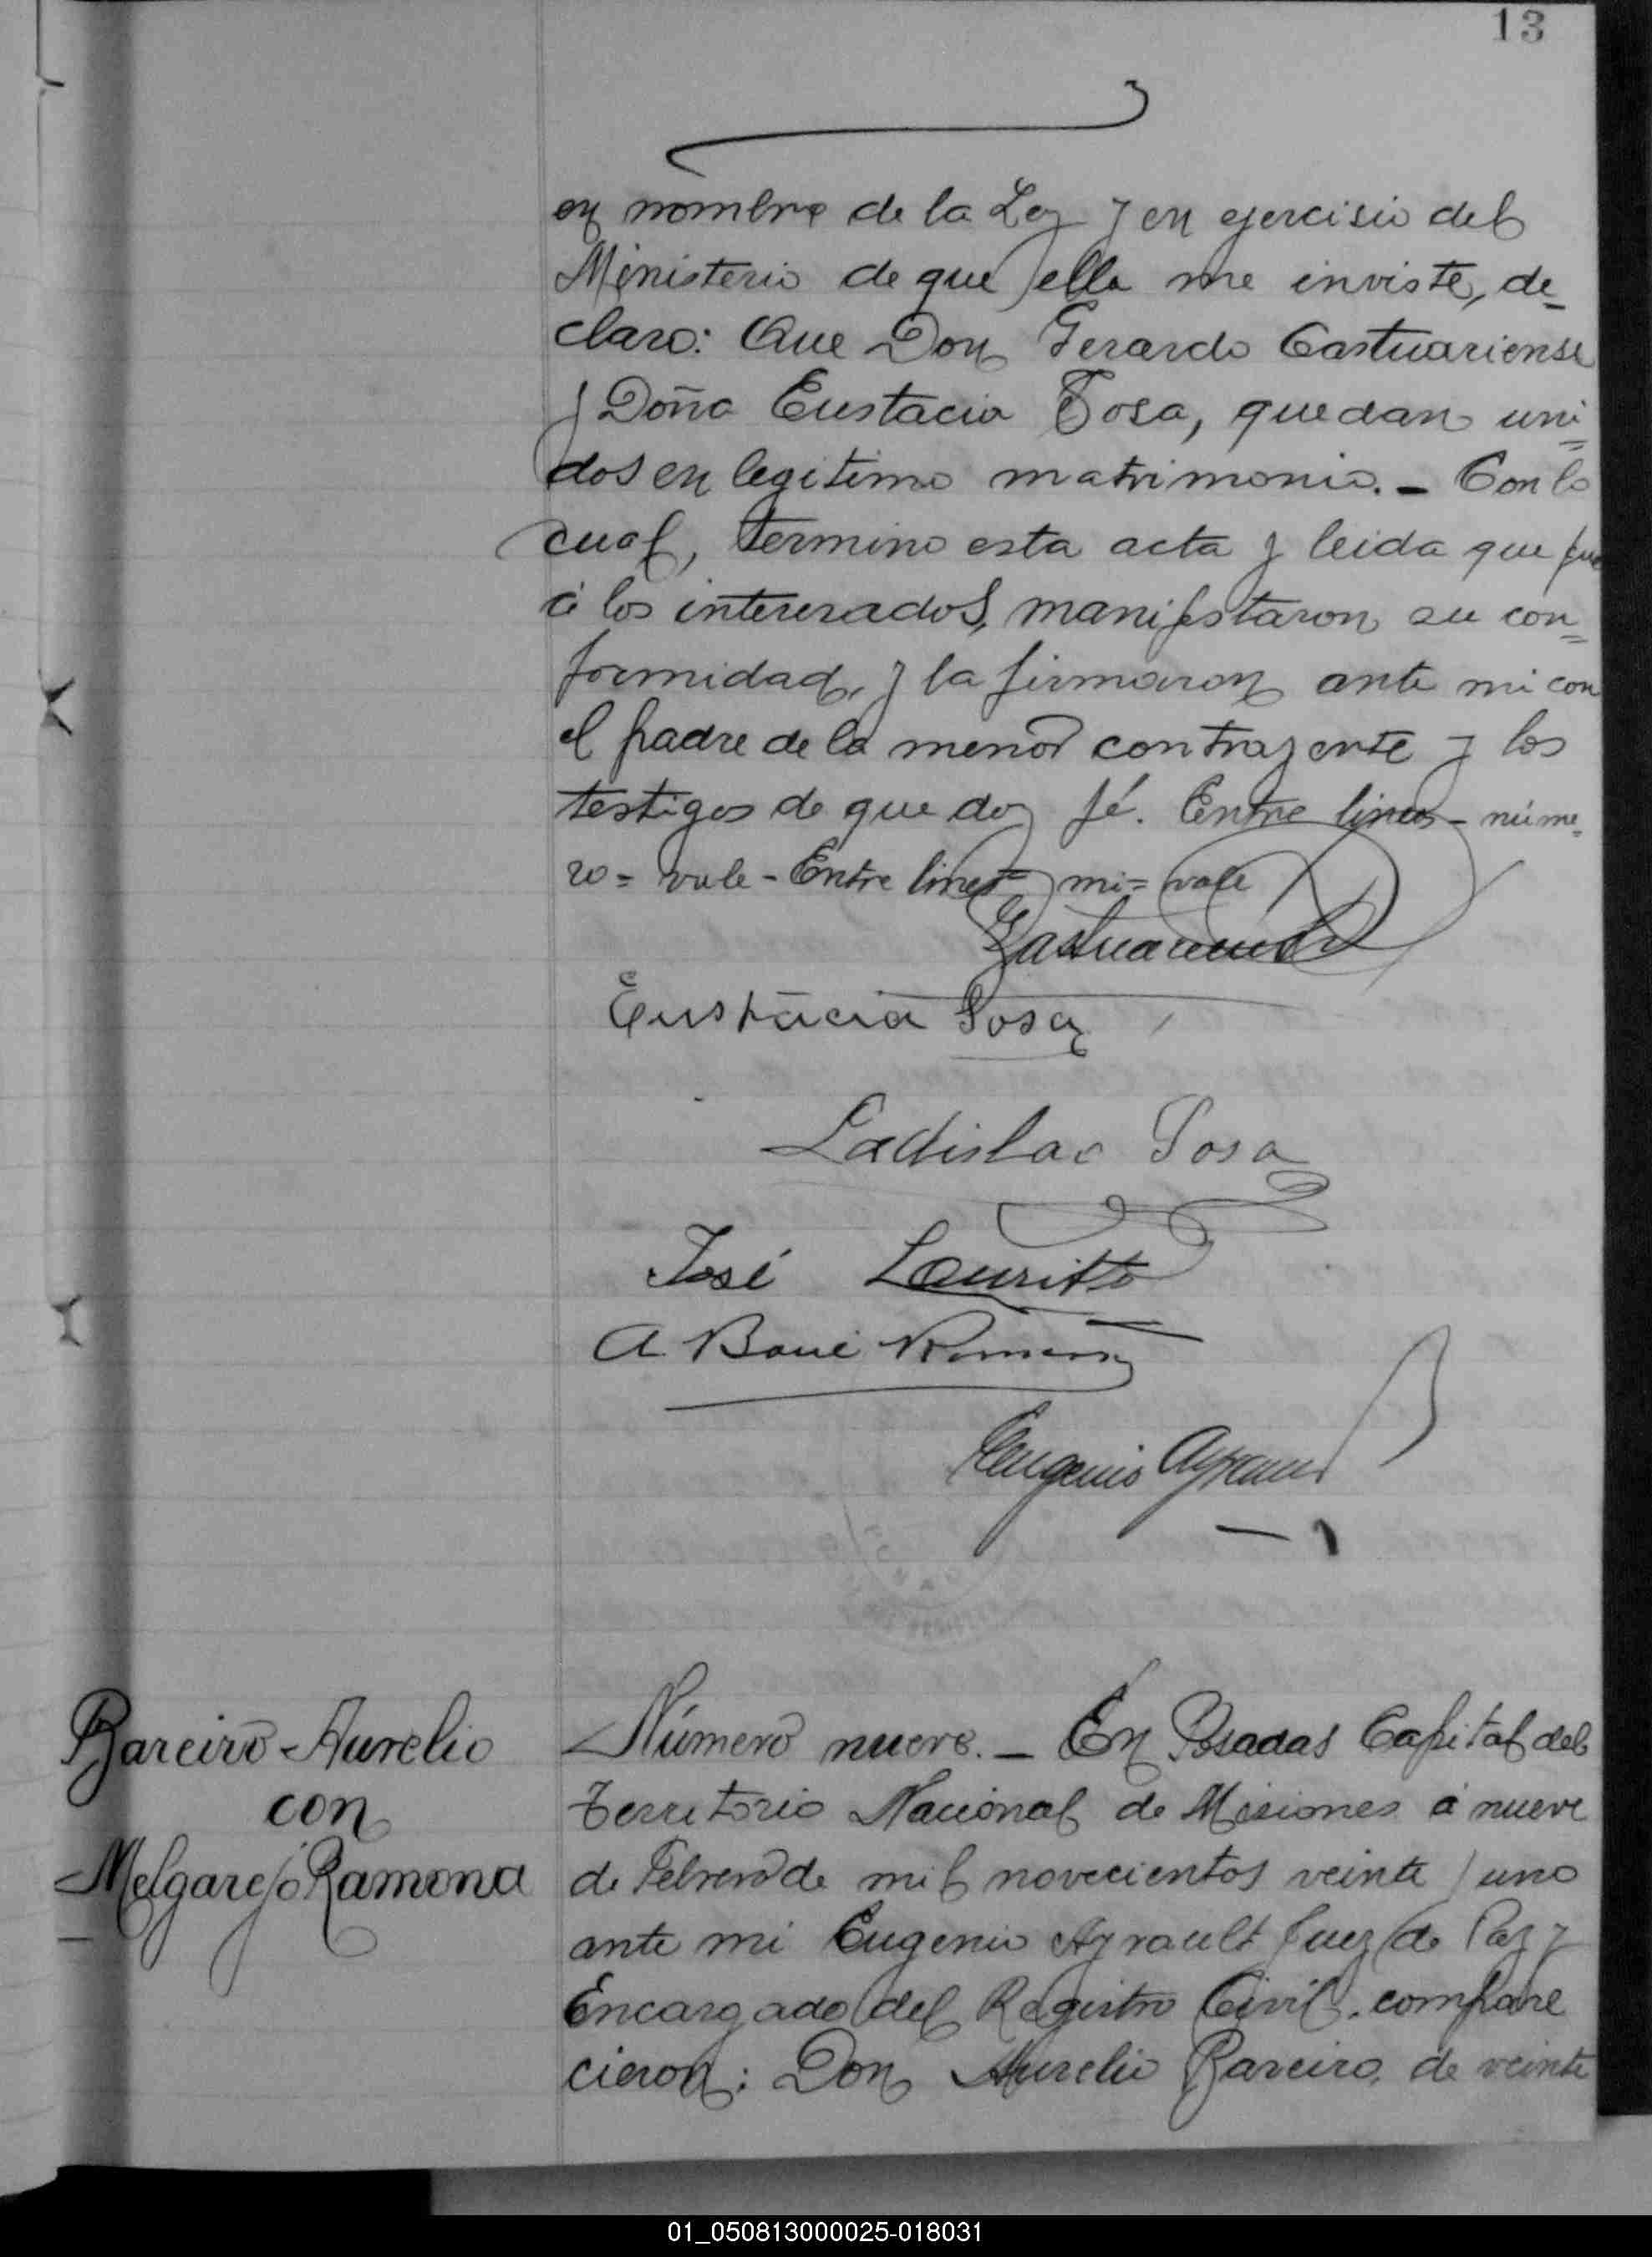 13
en nombre de la Ley y en ejercisio del
Ministerio de que ella me inviste, de=
claro: Que Don Gerardo Castuariense
y Doña Eustacia Sosa, quedan uni=
dos en legitimo matrimonio. - Con lo
cual, termino esta acta y leida que fue
á los interesados, manifestaron su con=
formidad, y la firmaron ante mi con
el padre de la menor contrayente y los
testigos de que doy fé. Entre lineas - núme=
ro = vale - Entre lineas mi = vale
Eustacia Sosa
Ladislao Sosa
José Lauritto
A. Romero
Eugenio Ayrault
Bareiro Aurelio
con
Melgarejo Ramona
Número nueve. - En Posadas Capital del
Territorio Nacional de Misiones á nueve
de Febrero de mil novecientos veinte y uno
ante mi Eugenio Ayrault Juez de Paz y
Encargado del Registro Civil. compare
cieron: Don Aurelio Bareiro, de veinte
01_050813000025-018031